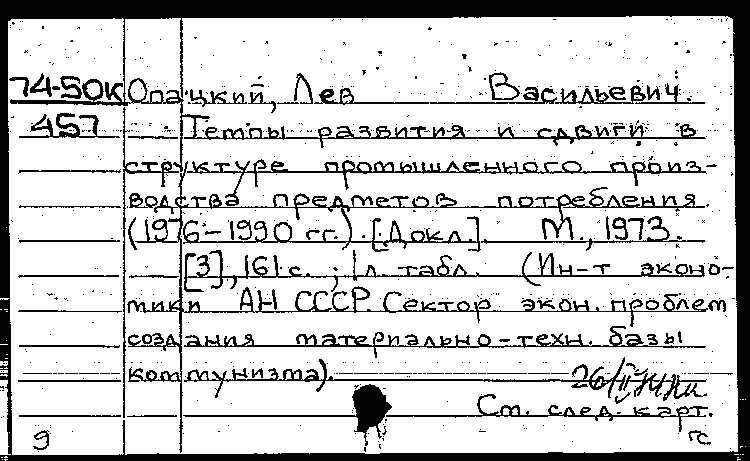 74-50к Опацкий, Лев Васильевич.
457 Темпы развития и сдвиги в
структуре промышленного произ-
водства предметов потребления
(1976-1990 гг.). [Докл.]. М., 1973.
[3], 161 с.; 1 л. табл. (Ин-т эконо-
мики АН СССР. Сектор экон. проблем
создания материально-техн. базы
коммунизма).
26/II
См. след. карт.
9 гс